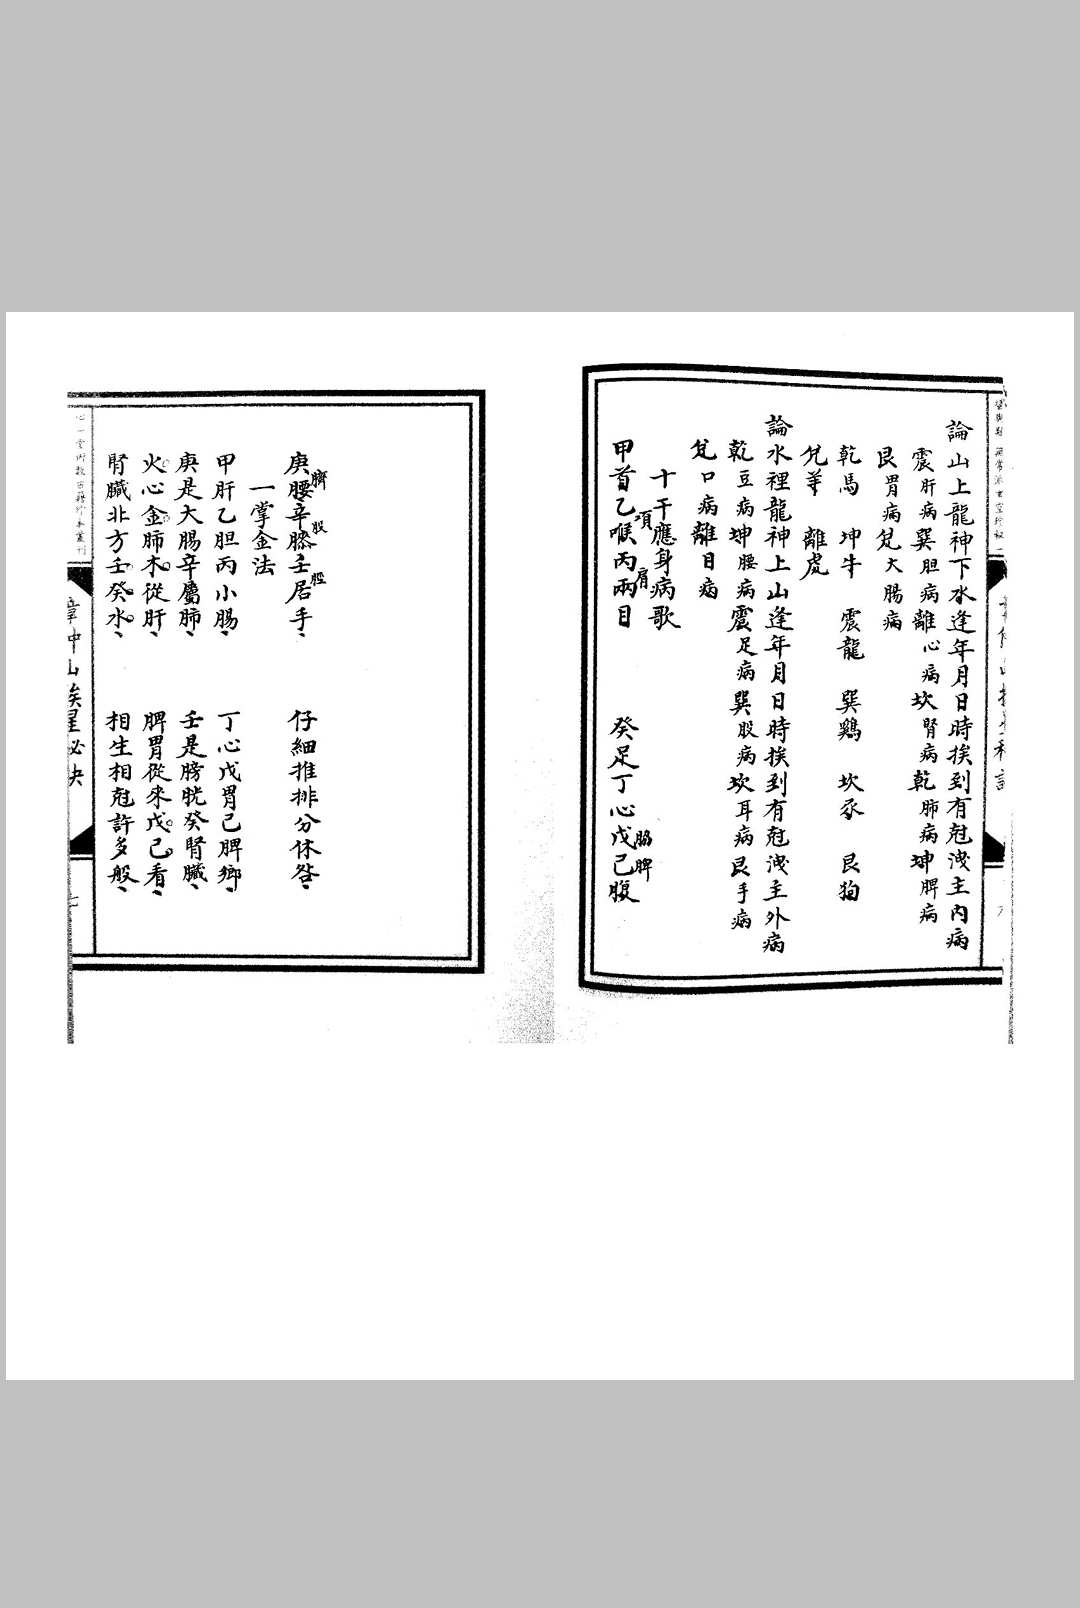 論山上龍神下水逢年月日時挨到有尅洩主內病
震肝病巽胆病離心病坎腎病乾肺病坤脾病
艮胃病兌大腸病
乾馬 坤牛 震龍 巽鷄 坎豕 艮狗
兌羊 離虎
論水裡龍神上山逢年月日時挨到有尅洩主外病
乾豆病坤腰病震足病巽股病坎耳病艮手病
兌口病離目病
十干應身病歌
項 肩 脇脾
甲首乙喉丙兩目 癸足丁心戊己腹
臍 股 脛
庚腰辛膝壬居手、 仔細推排分休咎、
一掌金法
甲肝乙胆丙小腸、 丁心戊胃己脾鄉、
庚是大腸辛屬肺、 壬是膀胱癸腎臟、
火心金肺木從肝、 脾胃從來戊己看、
腎臟北方壬癸水、 相生相尅許多般、
心一堂術數古籍珍本叢刊
章仲山挨星秘訣
七